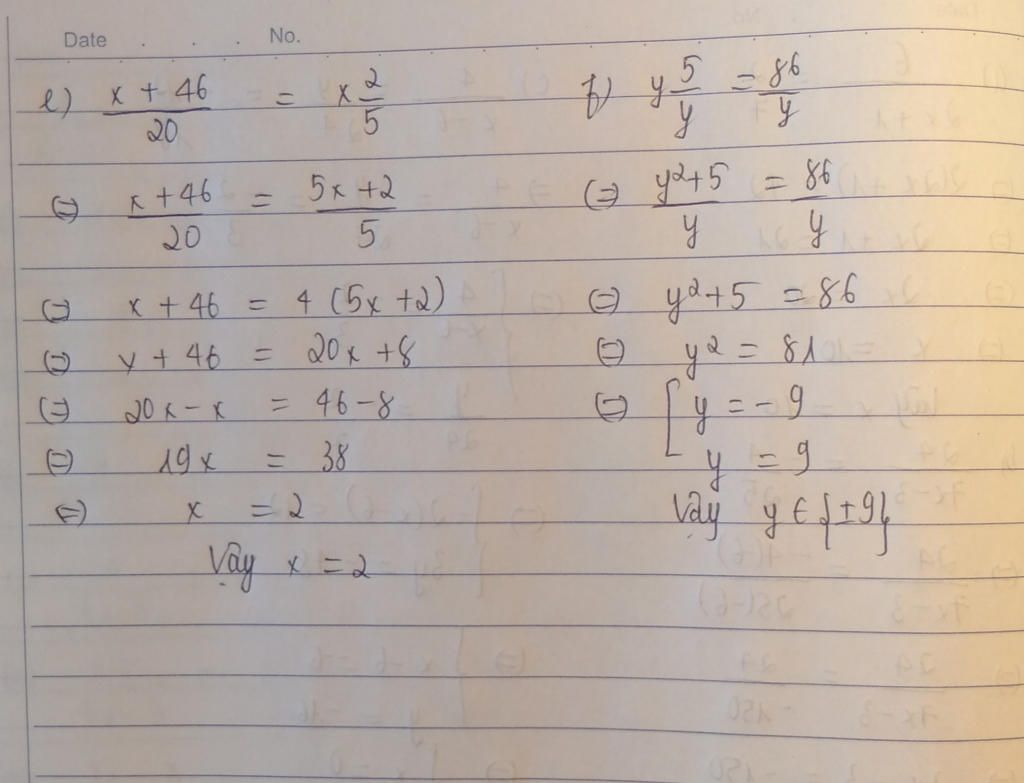 Date . . . No.
e) x + 46 / 20 = x 2/5
⇔ x + 46 / 20 = 5x + 2 / 5
⇔ x + 46 = 4 (5x + 2)
⇔ x + 46 = 20x + 8
⇔ 20x - x = 46 - 8
⇔ 19x = 38
⇔ x = 2
Vậy x = 2
f) y 5/y = 86/y
⇔ y² + 5 / y = 86 / y
⇔ y² + 5 = 86
⇔ y² = 81
⇔ [ y = - 9
y = 9
Vậy y ∈ {±9}